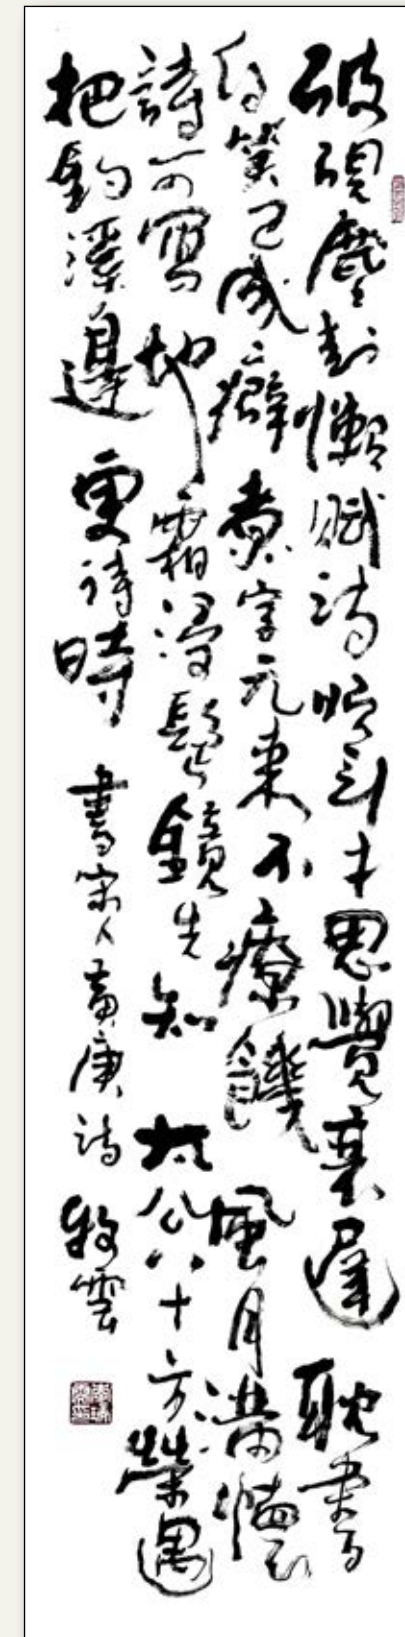 破硯塵封懶賦詩才思覺衰遲耽書
自笑已成癖煮字元來不療饑風月滿懷
詩可寫地霜鬢鏡先知太公八十方榮遇
把釣溪邊更待時書宋人黃庚詩牧雲